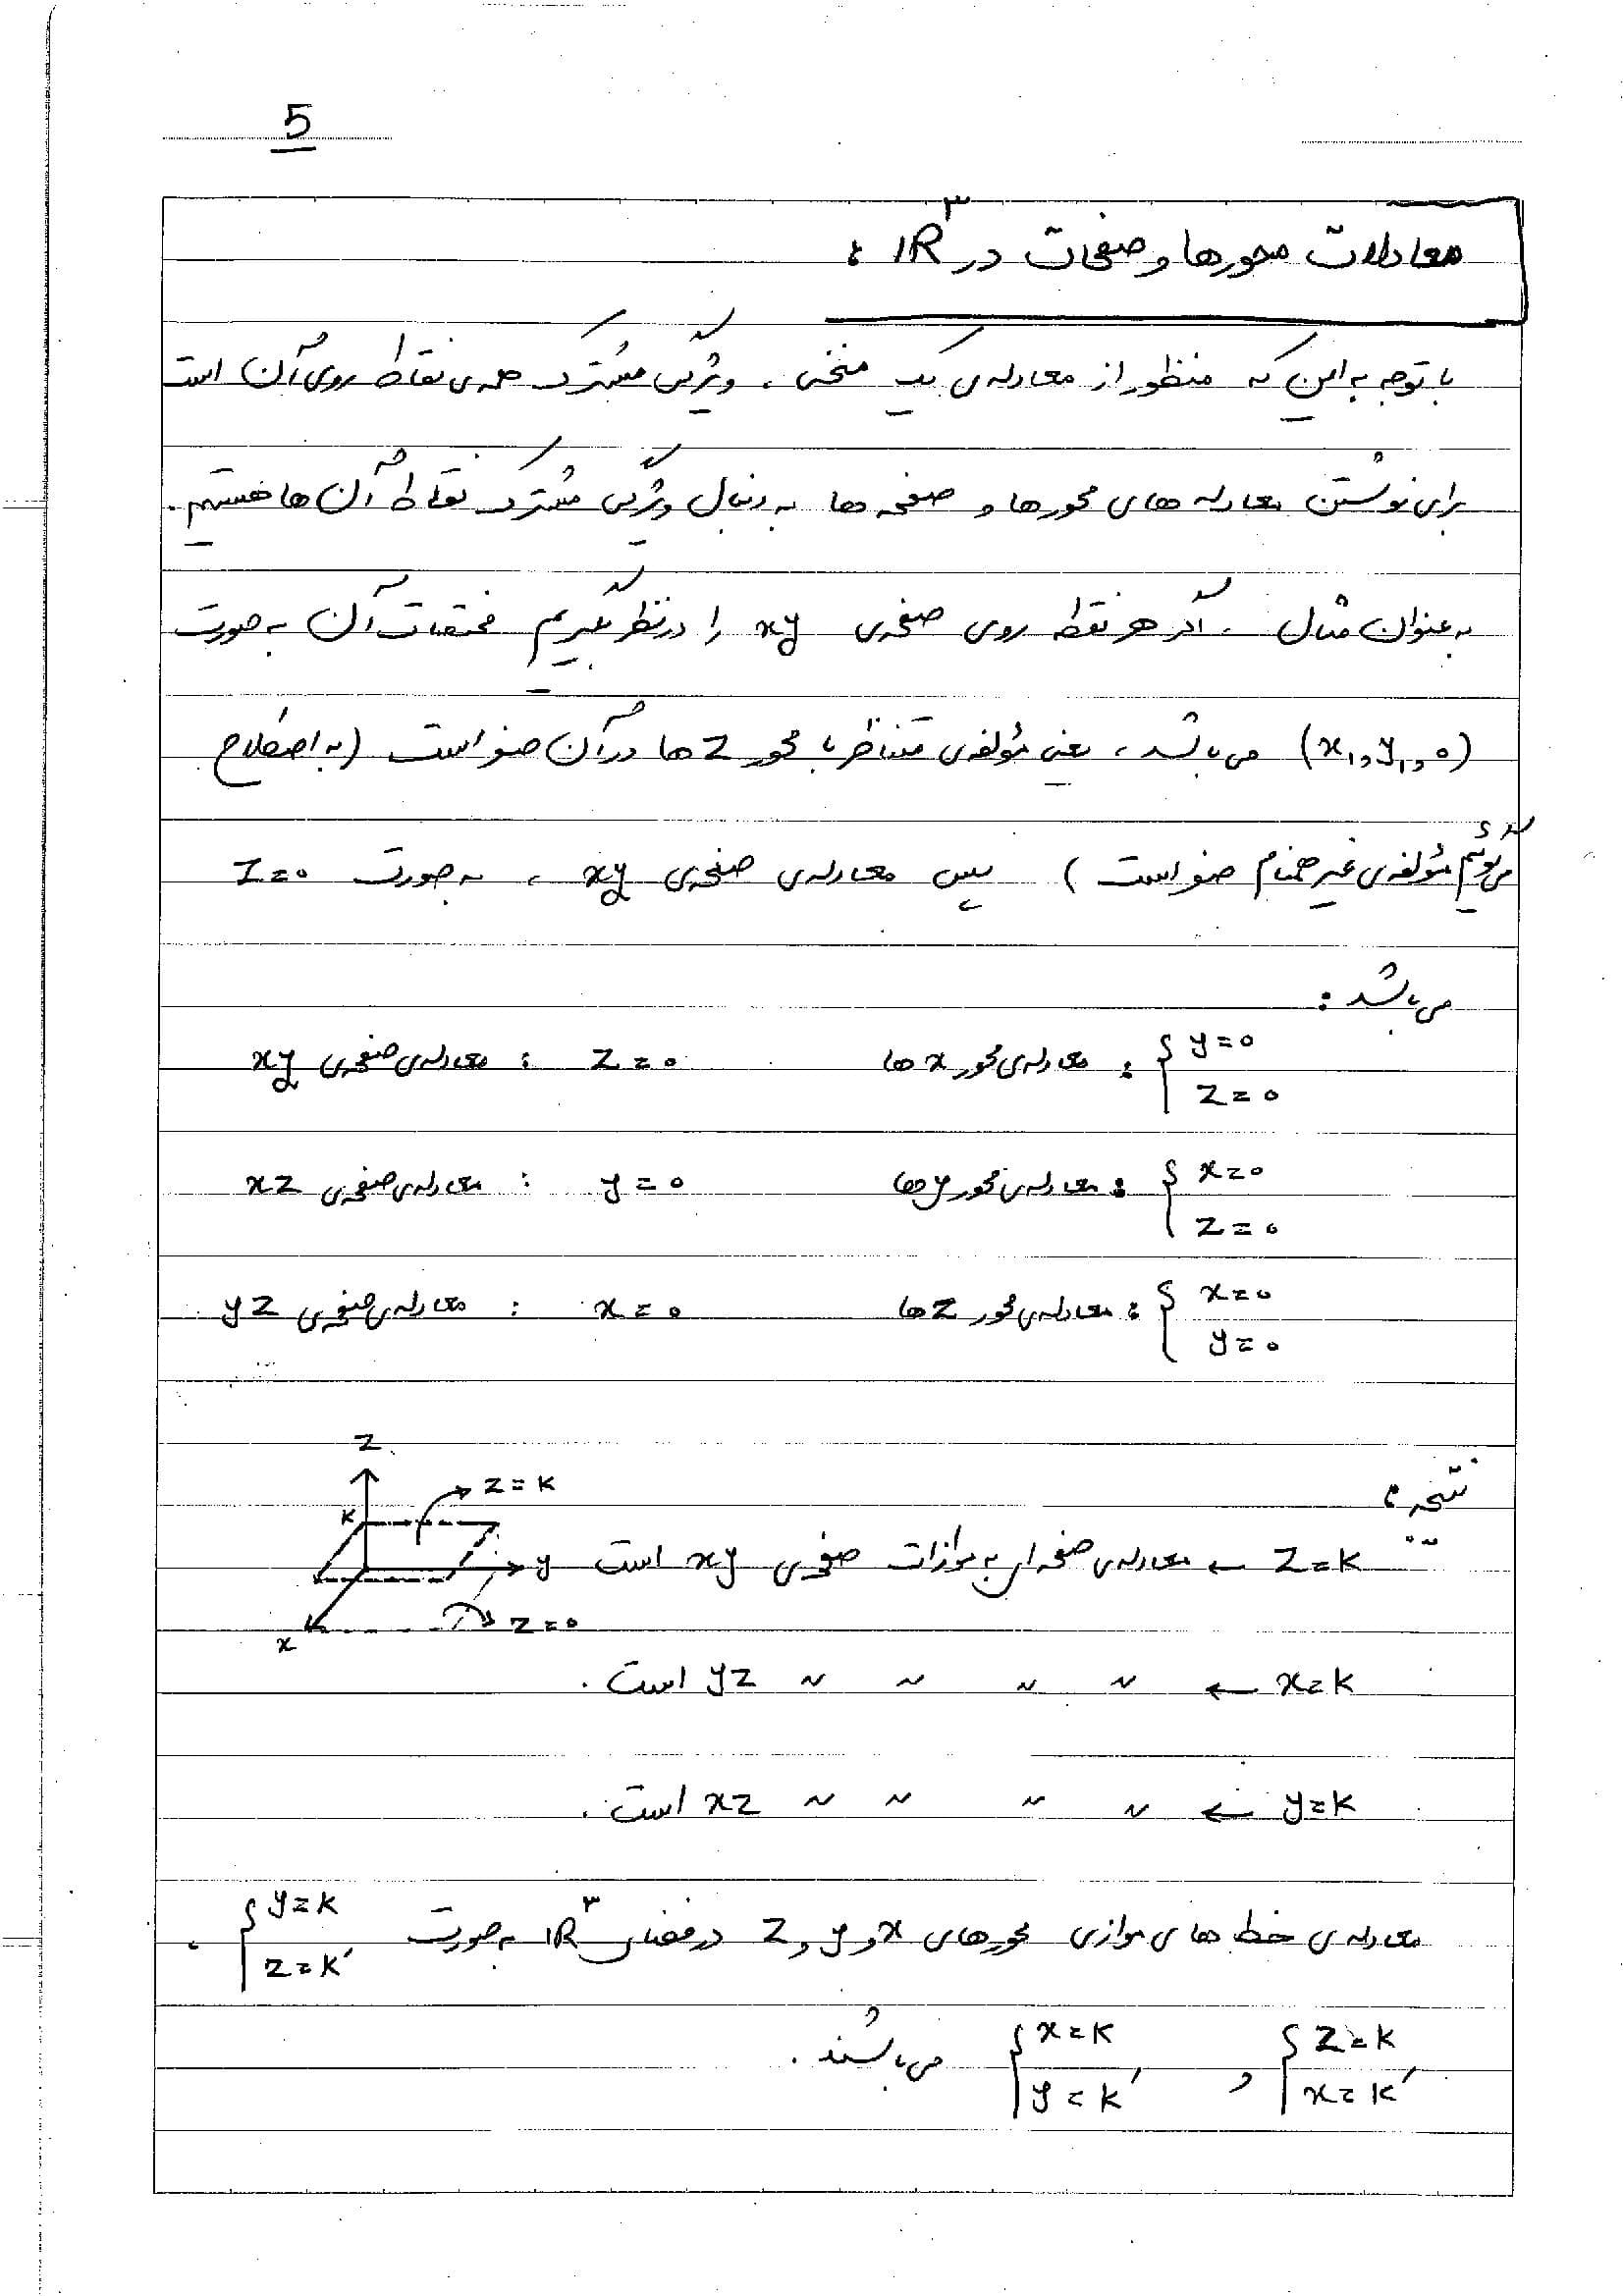 5
معادلات محورها و صفحات در IR³ :
با توجه به این که منظور از معادله‌ی یک منحنی ، ویژگی مشترک همه‌ی نقاط روی آن است
برای نوشتن معادله های محورها و صفحه ها به دنبال ویژگی مشترک نقاط آن ها هستیم.
به عنوان مثال ، اگر هر نقطه روی صفحه‌ی xy را در نظر بگیریم مختصات آن به صورت
(x₁, y₁, 0) می باشد ، یعنی مؤلفه‌ی متناظر با محور z ها در آن صفر است (به اصطلاح
می گوئیم مؤلفه‌ی غیر همنام صفر است ) پس معادله‌ی صفحه‌ی xy ، به صورت z=0
می باشد :
{ y=0 , z=0 : معادله‌ی محور x ها z=0 : معادله‌ی صفحه‌ی xy
{ x=0 , z=0 : معادله‌ی محور y ها y=0 : معادله‌ی صفحه‌ی xz
{ x=0 , y=0 : معادله‌ی محور z ها x=0 : معادله‌ی صفحه‌ی yz
نتیجه :
z=k ← معادله‌ی صفحه ای به موازات صفحه‌ی xy است
z
k
z=k
y
z=0
x
x=k ← " " " " yz است .
y=k ← " " " " xz است .
معادله‌ی خط های موازی محورهای x و y و z در فضای IR³ به صورت { y=k , z=k′ ،
{ z=k , x=k′ و { x=k , y=k′ می باشند .